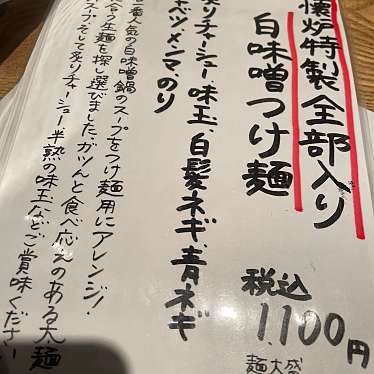 懐炉特製全部入り
白味噌つけ麺
税込
1,100円
麺大盛
炙りチャーシュー、味玉、白髪ネギ、青ネギ
キャベツ、メンマ、のり
番人気の白味噌鍋のスープをつけ麺用にアレンジ！
合う生麺を探し選びました。ガツんと食べ応えのある太麺
スープ、そして炙りチャーシュー半熟の味玉などご賞味ください